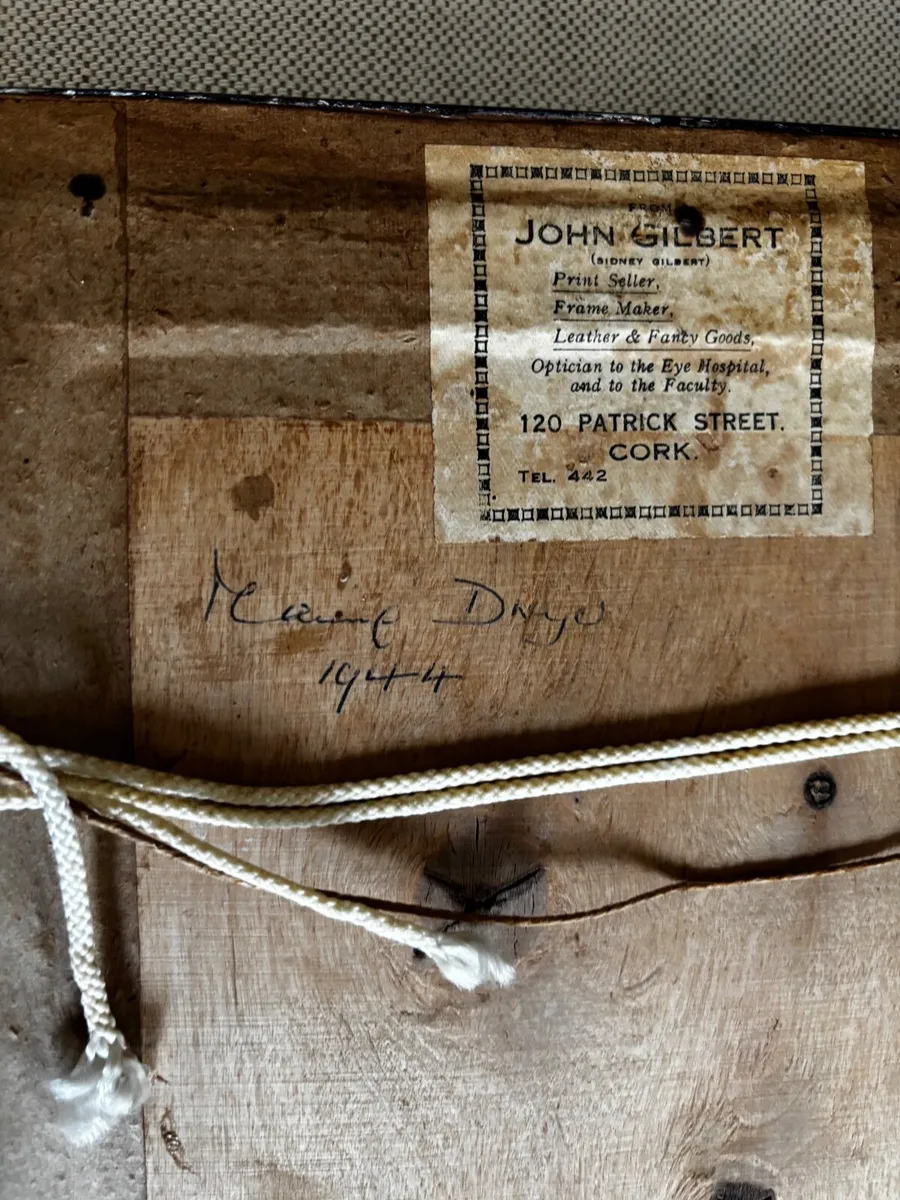 FROM
JOHN GILBERT
(SIDNEY GILBERT)
Print Seller,
Frame Maker,
Leather & Fancy Goods,
Optician to the Eye Hospital,
and to the Faculty.
120 PATRICK STREET.
CORK.
TEL. 442
1944